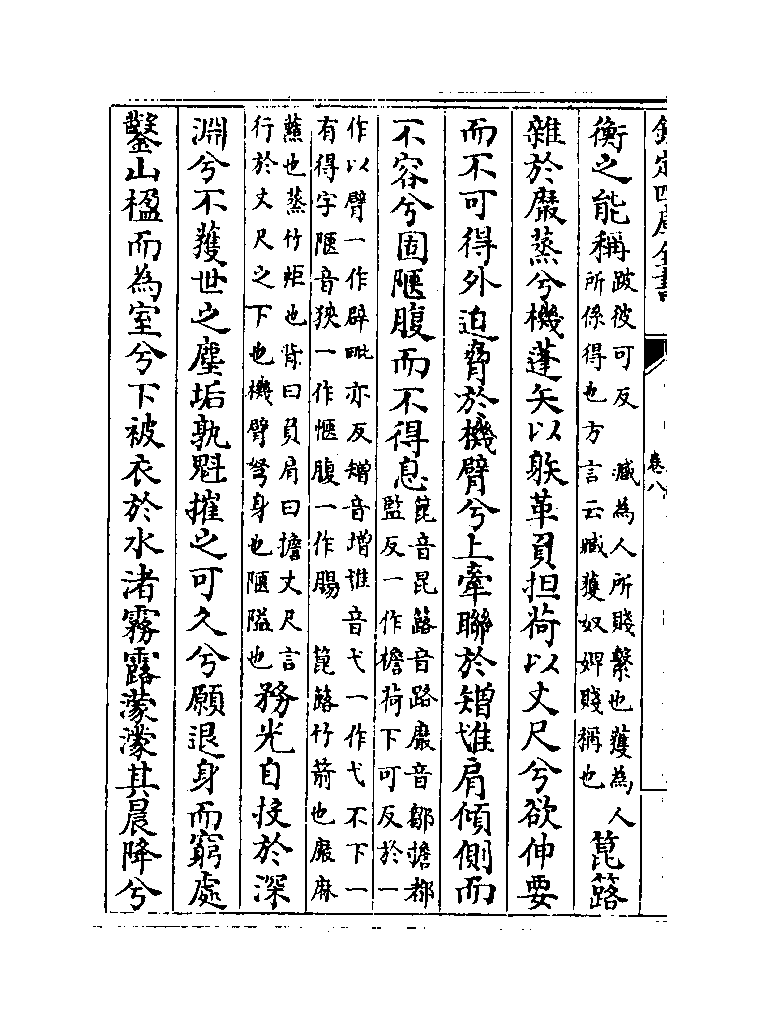 欽定四庫全書
卷八
衡之能稱跛彼可反　臧為人所賤繫也獲為人
所係得也方言云臧獲奴婢賤稱也　箟簬
雜於黀蒸兮機蓬矢以躲革負担荷以丈尺兮欲伸要
而不可得外迫脅於機臂兮上牽聯於矰隿肩傾側而
不容兮固陿腹而不得息箟音昆簬音路黀音鄒擔都
監反一作檐荷下可反於一
作以臂一作辟毗亦反矰音增隿音弋一作弋不下一
有得字陿音狹一作愜腹一作腸　箟簬竹箭也黀麻
蕉也蒸竹炬也背曰負肩曰擔丈尺言
行於丈尺之下也機臂弩身也陿隘也　務光自投於深
淵兮不獲世之塵垢孰魁摧之可久兮願退身而窮處
鑿山楹而為室兮下被衣於水渚霧露濛濛其晨降兮